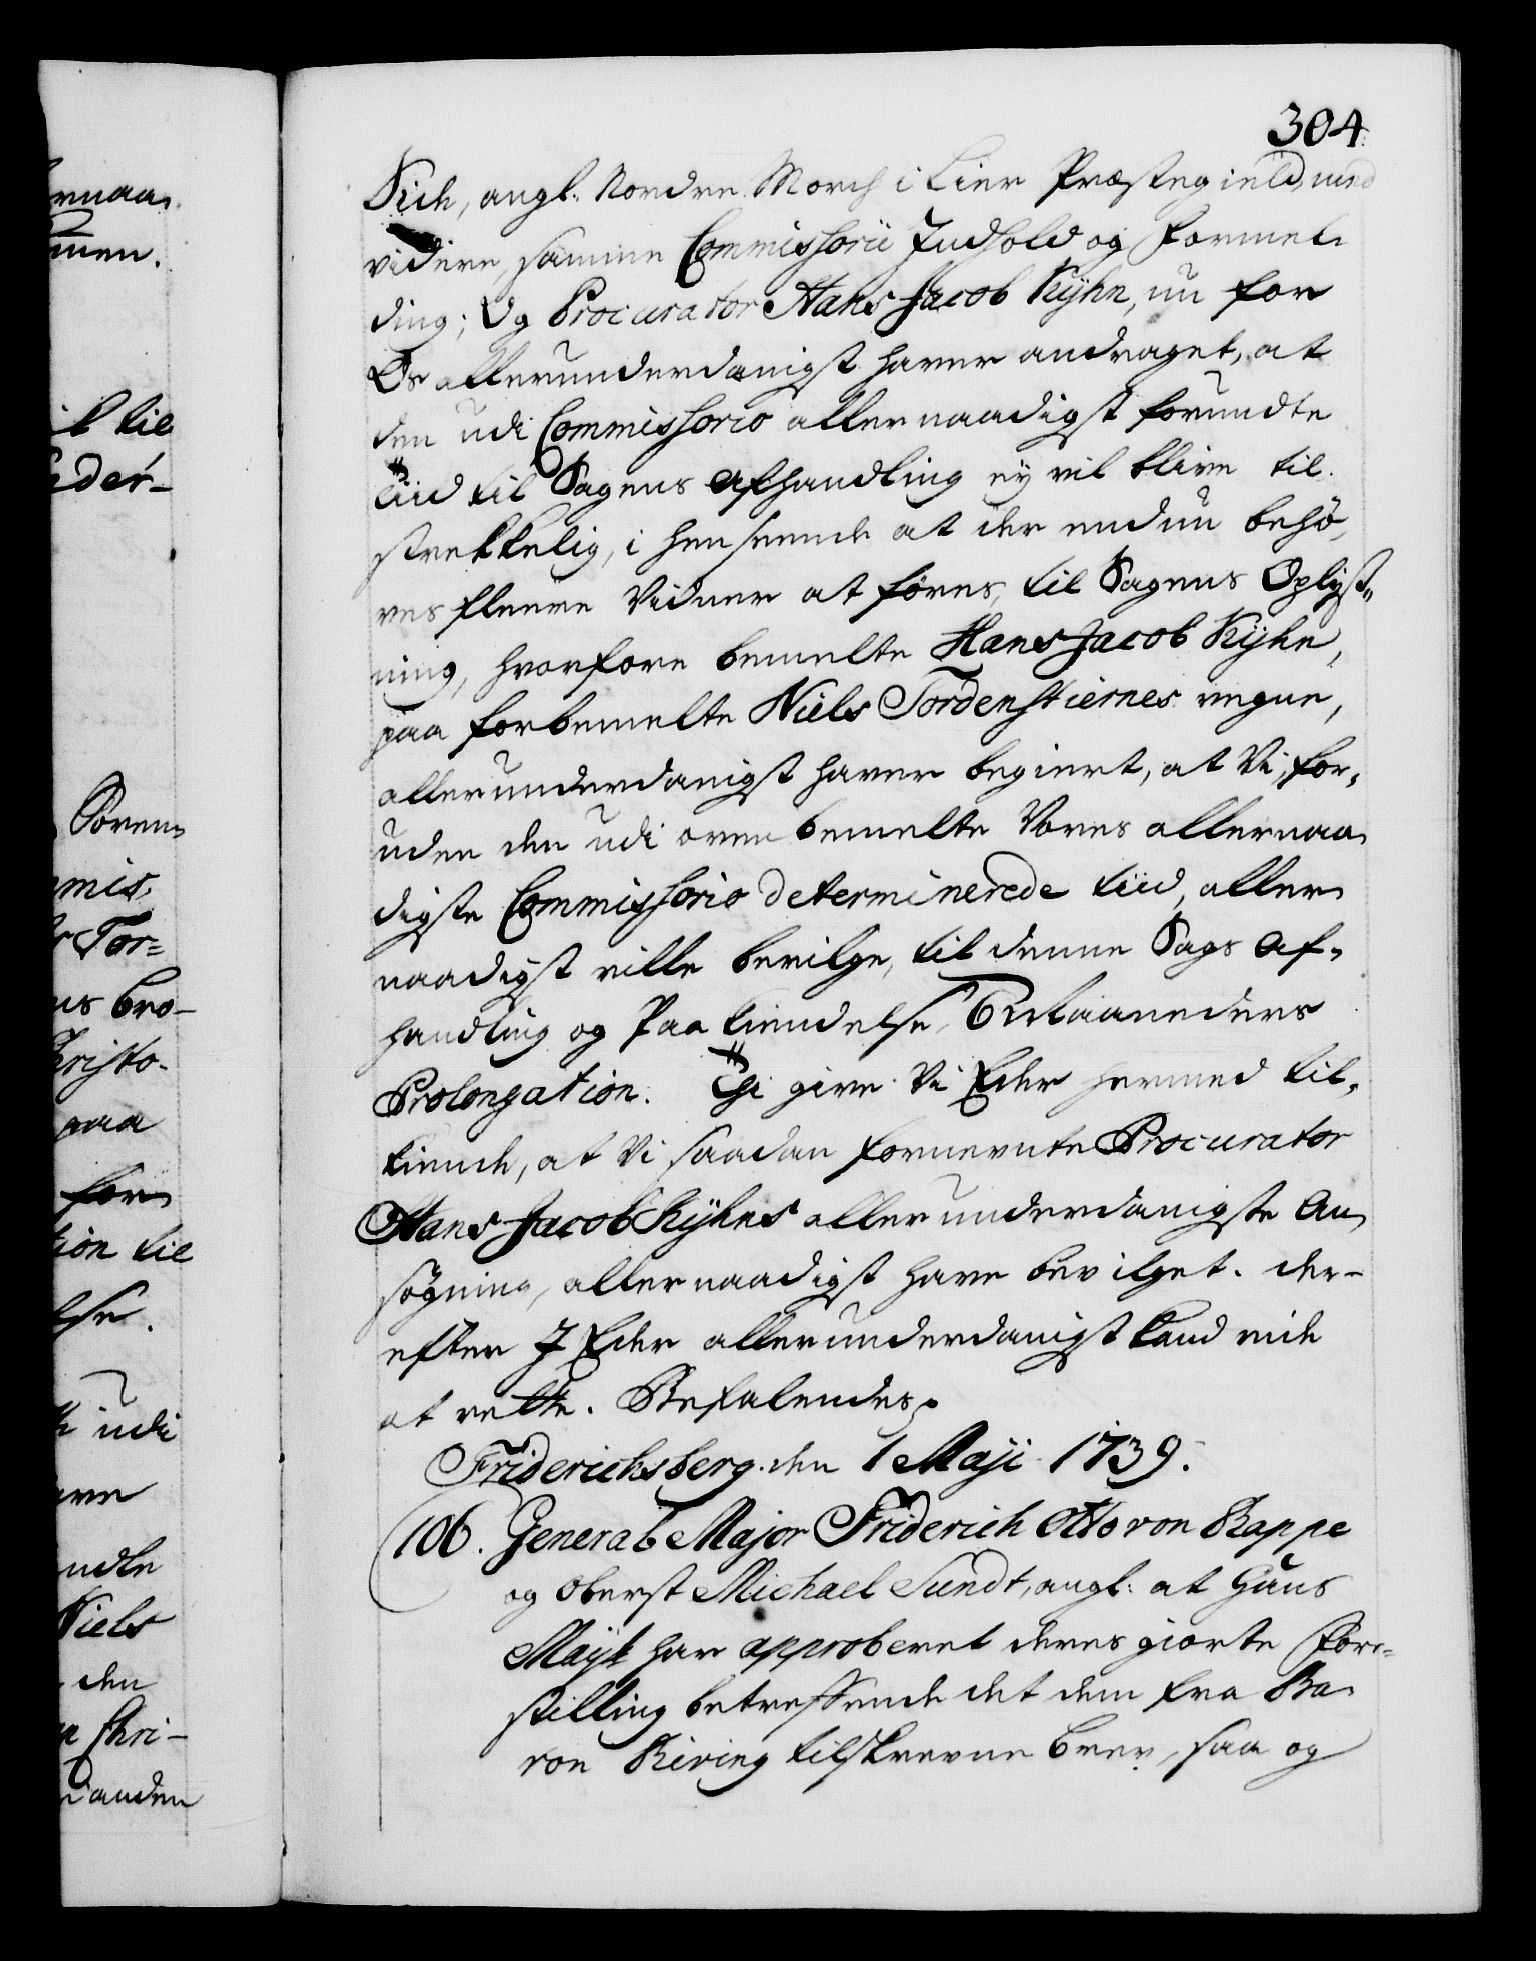 304
Vich, angl: Nordre Morch i Lier Præstegield, med
videre samme Commissorii Indhold og Formel-
ding; Og Procurator Hans Jacob Kÿhn, nu for
Os allerunderdanigst haver andraget, at
den udi Commissorio allernaadigst forundte
Tiid til Sagens Afhandling ey vil blive til-
strekkelig, i henseende at der endnu behö-
ves fleere Vidner at föres, til Sagens Oplyst-
ning, hvorfore bemelte Hans Jacob Kÿhn,
paa forbemelte Niels Tordenstiernes vegne,
allerunderdanigst haver begiert, at Vi, for-
uden den udi ovenbemelte Vores allernaa-
digste Commissorio determinerede tiid, aller-
naadigst ville bevilge, til denne Sags Af-
handling og Paakiendelse, 6 Maaneders
Prolongation. Thi give Vi Eder hermed til-
kiende, at Vi saadan fornevnte Procurator
Hans Jacob Kÿhns allerunderdanigste An-
søgning, allernaadigst have bevilget. der-
efter I Eder allerunderdanigst kand vide
at rette. Befalendes.
Friderichsberg den 1 Maji 1739.
106. General Major Friderich Otto von Rappe
og Oberst Michael Sundt, angl: at Hans
Mayt har approberet deres giorte Fore-
stilling betreffende det dem fra Ba-
ron Riving tilskrevne brev, saa og
ernaa-
men.
il til
eder-
Sören
mis-
Tor=
bro-
hristo-
paa
for
tion til
lse.
udi
ndle
Niels
den
Chri-
anden